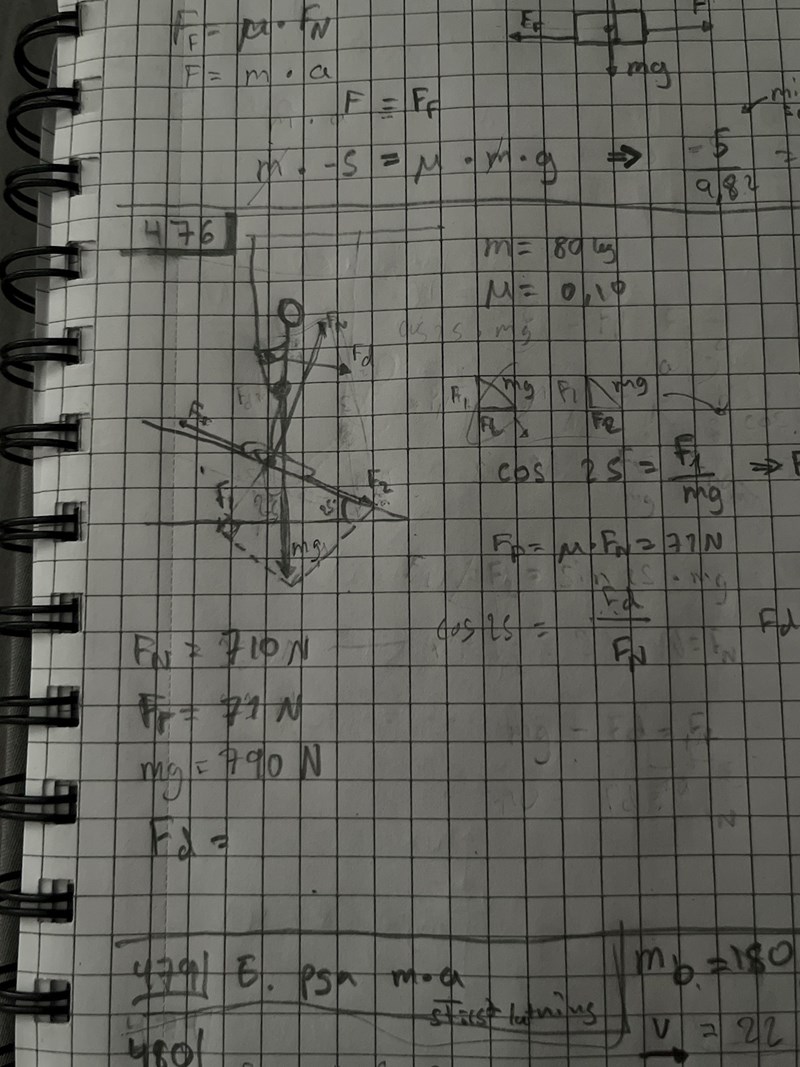 F_F = μ · F_N
F = m · a
F = F_F
mg
m · -5 = μ · m · g ⇒ -5/9,82
476
m = 80 kg
μ = 0,10
F_N
F_d
F_1 mg F_2
F_1 mg F_2
cos 25 = F_1/mg ⇒ F
F_2
F_1
25
25
mg
F_F = μ · F_N = 71 N
cos 25 = F_d/F_N F_d
F_N = 710 N
F_F = 71 N
mg = 790 N
F_d =
479 E. psa m·a
störst lutning
m_b = 180
v = 22
480